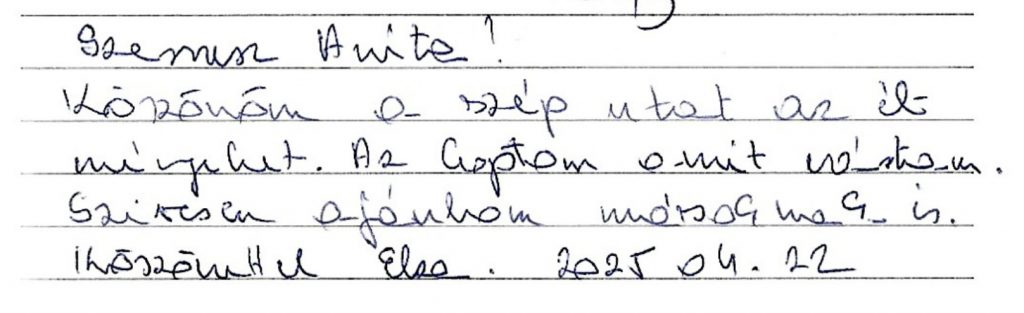 Szemesz Anita!
Köszönöm a szép utat az él
ményeket. Azt kaptam amit vártam.
Szívesen ajánlom másoknak is.
Köszönettel Elza. 2025 04. 22